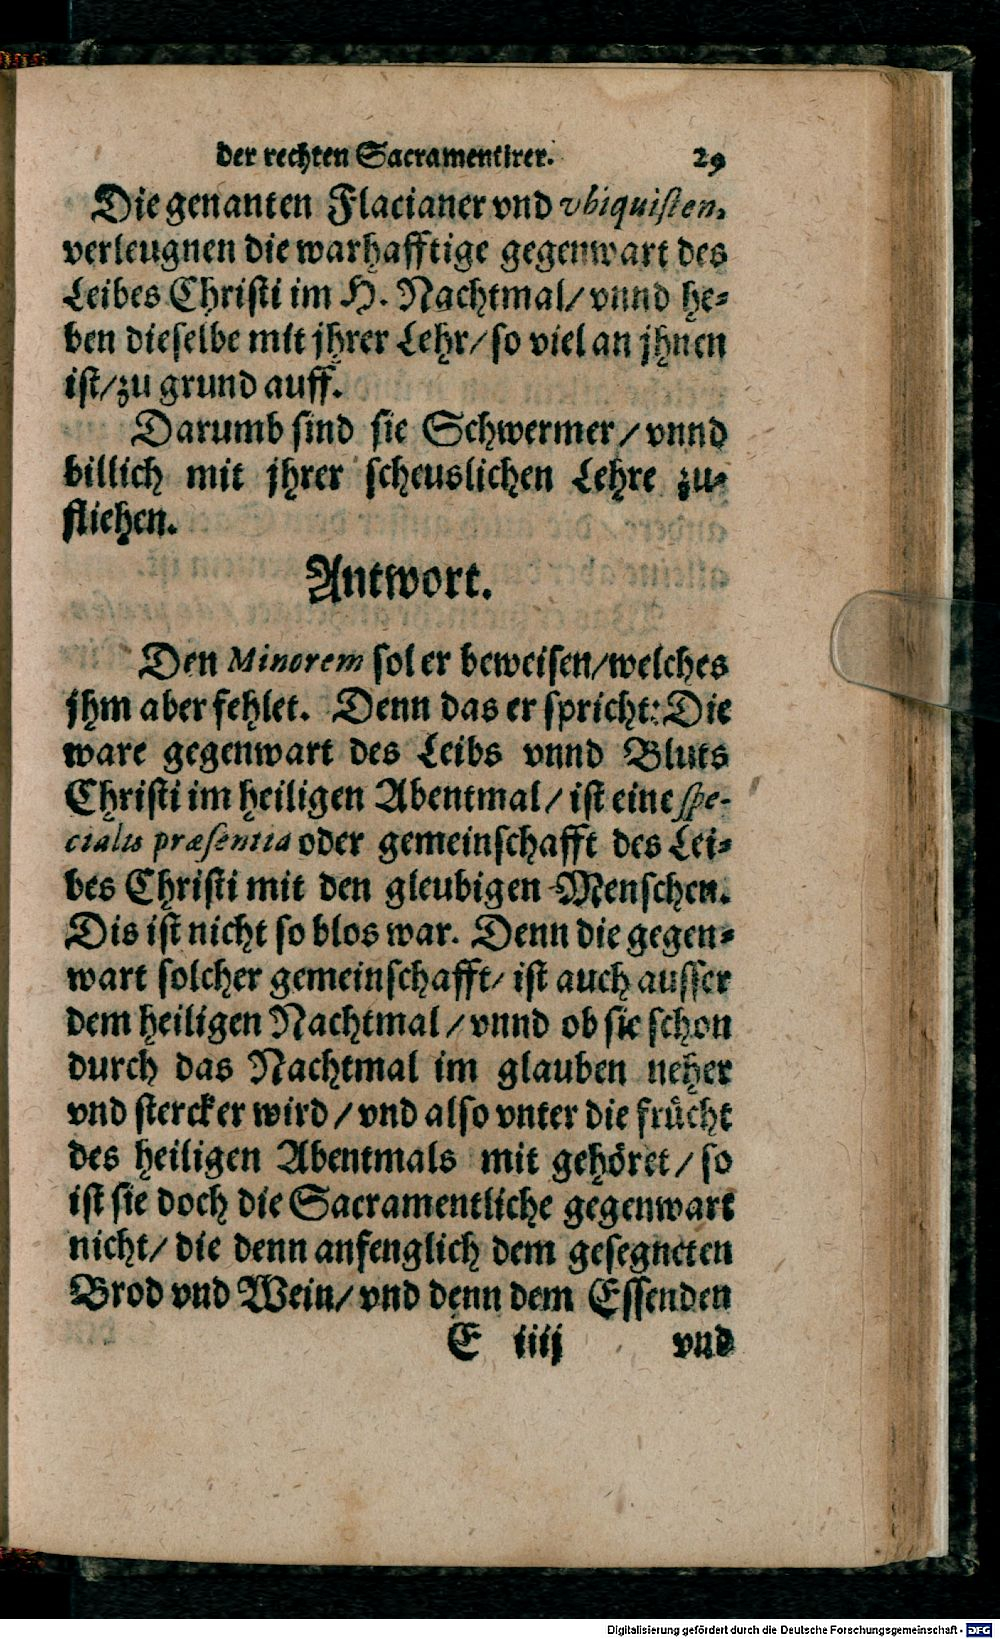 der rechten Sacramentirer. 29
Die genanten Flacianer vnd vbiquisten.
verleugnen die warhafftige gegenwart des
Leibes Christi im H. Nachtmal/ vnnd he⸗
ben dieselbe mit jhrer Lehr/ so viel an jhnen
ist/ zu grund auff.
Darumb sind sie Schwermer/ vnnd
billich mit jhrer scheuslichen Lehre zu⸗
fliehen.
Antwort.
Den Minorem sol er beweisen/ welches
jhm aber fehlet. Denn das er spricht: Die
ware gegenwart des Leibs vnnd Bluts
Christi im heiligen Abentmal/ ist eine spe-
cialis præsentia oder gemeinschafft des Lei⸗
bes Christi mit den gleubigen Menschen.
Dis ist nicht so blos war. Denn die gegen⸗
wart solcher gemeinschafft/ ist auch ausser
dem heiligen Nachtmal/ vnnd ob sie schon
durch das Nachtmal im glauben neher
vnd stercker wird/ vnd also vnter die frücht
des heiligen Abentmals mit gehöret/ so
ist sie doch die Sacramentliche gegenwart
nicht/ die denn anfenglich dem gesegneten
Brod vnd Wein/ vnd denn dem Essenden
E iiij vnd
Digitalisierung gefördert durch die Deutsche Forschungsgemeinschaft - DFG